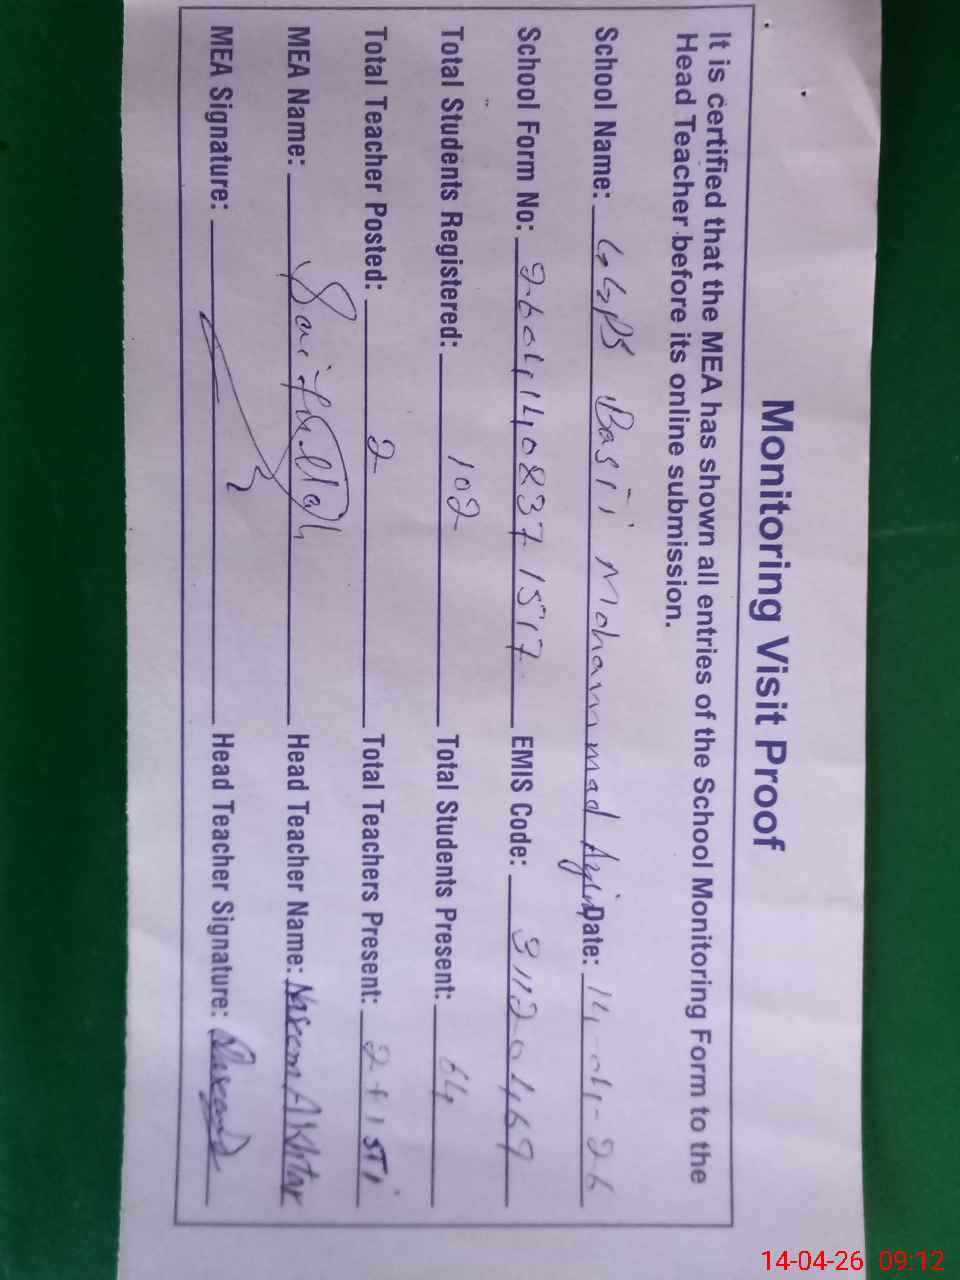 Monitoring Visit Proof
It is certified that the MEA has shown all entries of the School Monitoring Form to the
Head Teacher before its online submission.
School Name: GGPS Basti Mohammad Date: 14-04-26
School Form No: 26041408371517 EMIS Code: 31120469
Total Students Registered: 102 Total Students Present: 64
Total Teacher Posted: 2 Total Teachers Present: 2+1 STI
MEA Name: Saifullah Head Teacher Name: Naseem Akhtar
MEA Signature: Head Teacher Signature:
14-04-26 09:12